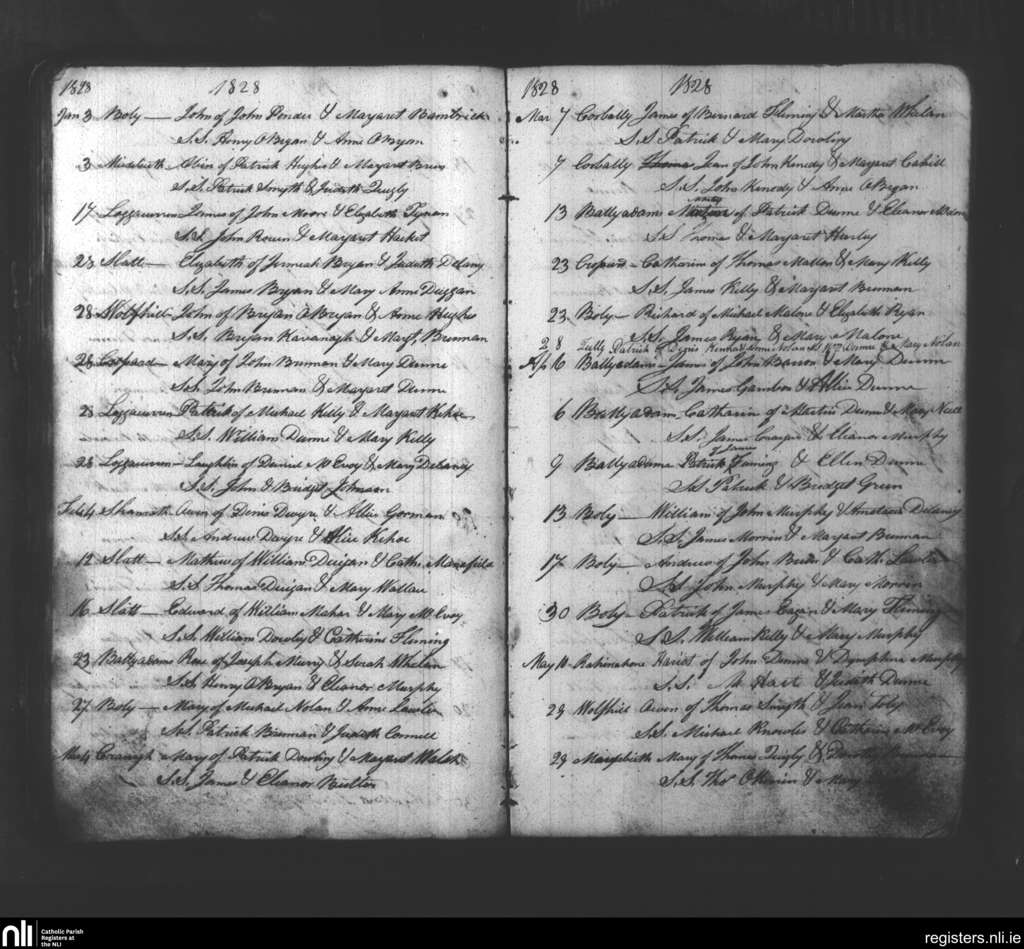 1828 1828
Jan 3 Boly — John of John Pender & Margaret Bambrick
S.S. Henry OBryan & Anne OBryan
3 of Patrick Hughes & Margaret
S.S. Patrick Smyth & Judith Quigly
17 James of John Moore & Elizabeth Tynan
S.S. John Rowen & Margaret Hacket
23 Slatt — Elizabeth of Jeremiah Bryan & Judith Delany
S.S. James Bryan & Mary Anne Duggan
28 Wolfhill — John of Bryan OBryan & Anne Hughes
S.S. Bryan Kavanagh & Margt. Brennan
28 Mary of John Brennan & Mary Dunne
S.S. John Brennan & Margaret Dunne
28 Patrick of Michael Kelly & Margaret Kehoe
S.S. William Dunne & Mary Kelly
28 — Laughlin of Daniel McEvoy & Mary Delaney
S.S. John & Bridget Johnson
Feb 4 Shanrath Owen of Denis Dwyre & Allice Gorman
S.S. Andrew Dwyre & Alice Kehoe
12 Slatt — Mathew of William Duigan & Cath. Mansfield
S.S. Thomas Duigan & Mary Wallace
16 Slatt — Edward of William Maher & Mary McEvoy
S.S. William Dowley & Catherine Fleming
23 Ballyadams Rose of Joseph Murry & Sarah Whelan
S.S. Henry OBryan & Eleanor Murphy
27 Boly — Mary of Michael Nolan & Anne Lawler
S.S. Patrick Brennan & Judith Connell
Mar 4 Mary of Patrick Dowling & Margaret Walsh
S.S. James & Eleanor
1828 1828
Mar 7 Corbally James of Bernard Fleming & Martha Whelan
S.S. Patrick & Mary Dowling
7 Corbally Jean of John Kenedy & Margaret Cahill
S.S. John Kenedy & Anne OBryan
13 Ballyadams of Patrick Dunne & Eleanor
S.S. & Margaret Hurley
23 — Catharine of Thomas Mallon & Mary Kelly
S.S. James Kelly & Margaret Brennan
23 Boly — Richard of Michael Malone & Elizabeth Ryan
S.S. James Ryan & Mary Malone
28 Tully Patrick of Denis & Anne Nolan Wm Dunne & Mary Nolan
Ap 6 Ballyadams — James of John Baron & Mary Dunne
S.S. James Gambon & Allice Dunne
6 Ballyadam — Catharine of Dunne & Mary Neill
S.S. James & Eleanor Murphy
9 Ballyadams Patrick of James Fleming & Ellen Dunne
S.S. Patrick & Bridget Green
13 Boly — William of John Murphy & Anastasia Delaney
S.S. James Morrin & Margaret Brennan
17 Boly — Andrew of John & Cath. Lawler
S.S. John Murphy & Mary Morrin
30 Boly — Patrick of James Eagan & Mary Fleming
S.S. William Kelly & Mary Murphy
May 11 Hariot of John Dunne & Dymphna Murphy
S.S. M Hart & Judith Dunne
29 Wolfhill Owen of Thomas Smyth & Jean Foly
S.S. Michael Knowles & Catharine McEvoy
29 Mary of Thomas Quigly &
S.S. Thos & Mary
nli
Catholic Parish
Registers at
the NLI
registers.nli.ie